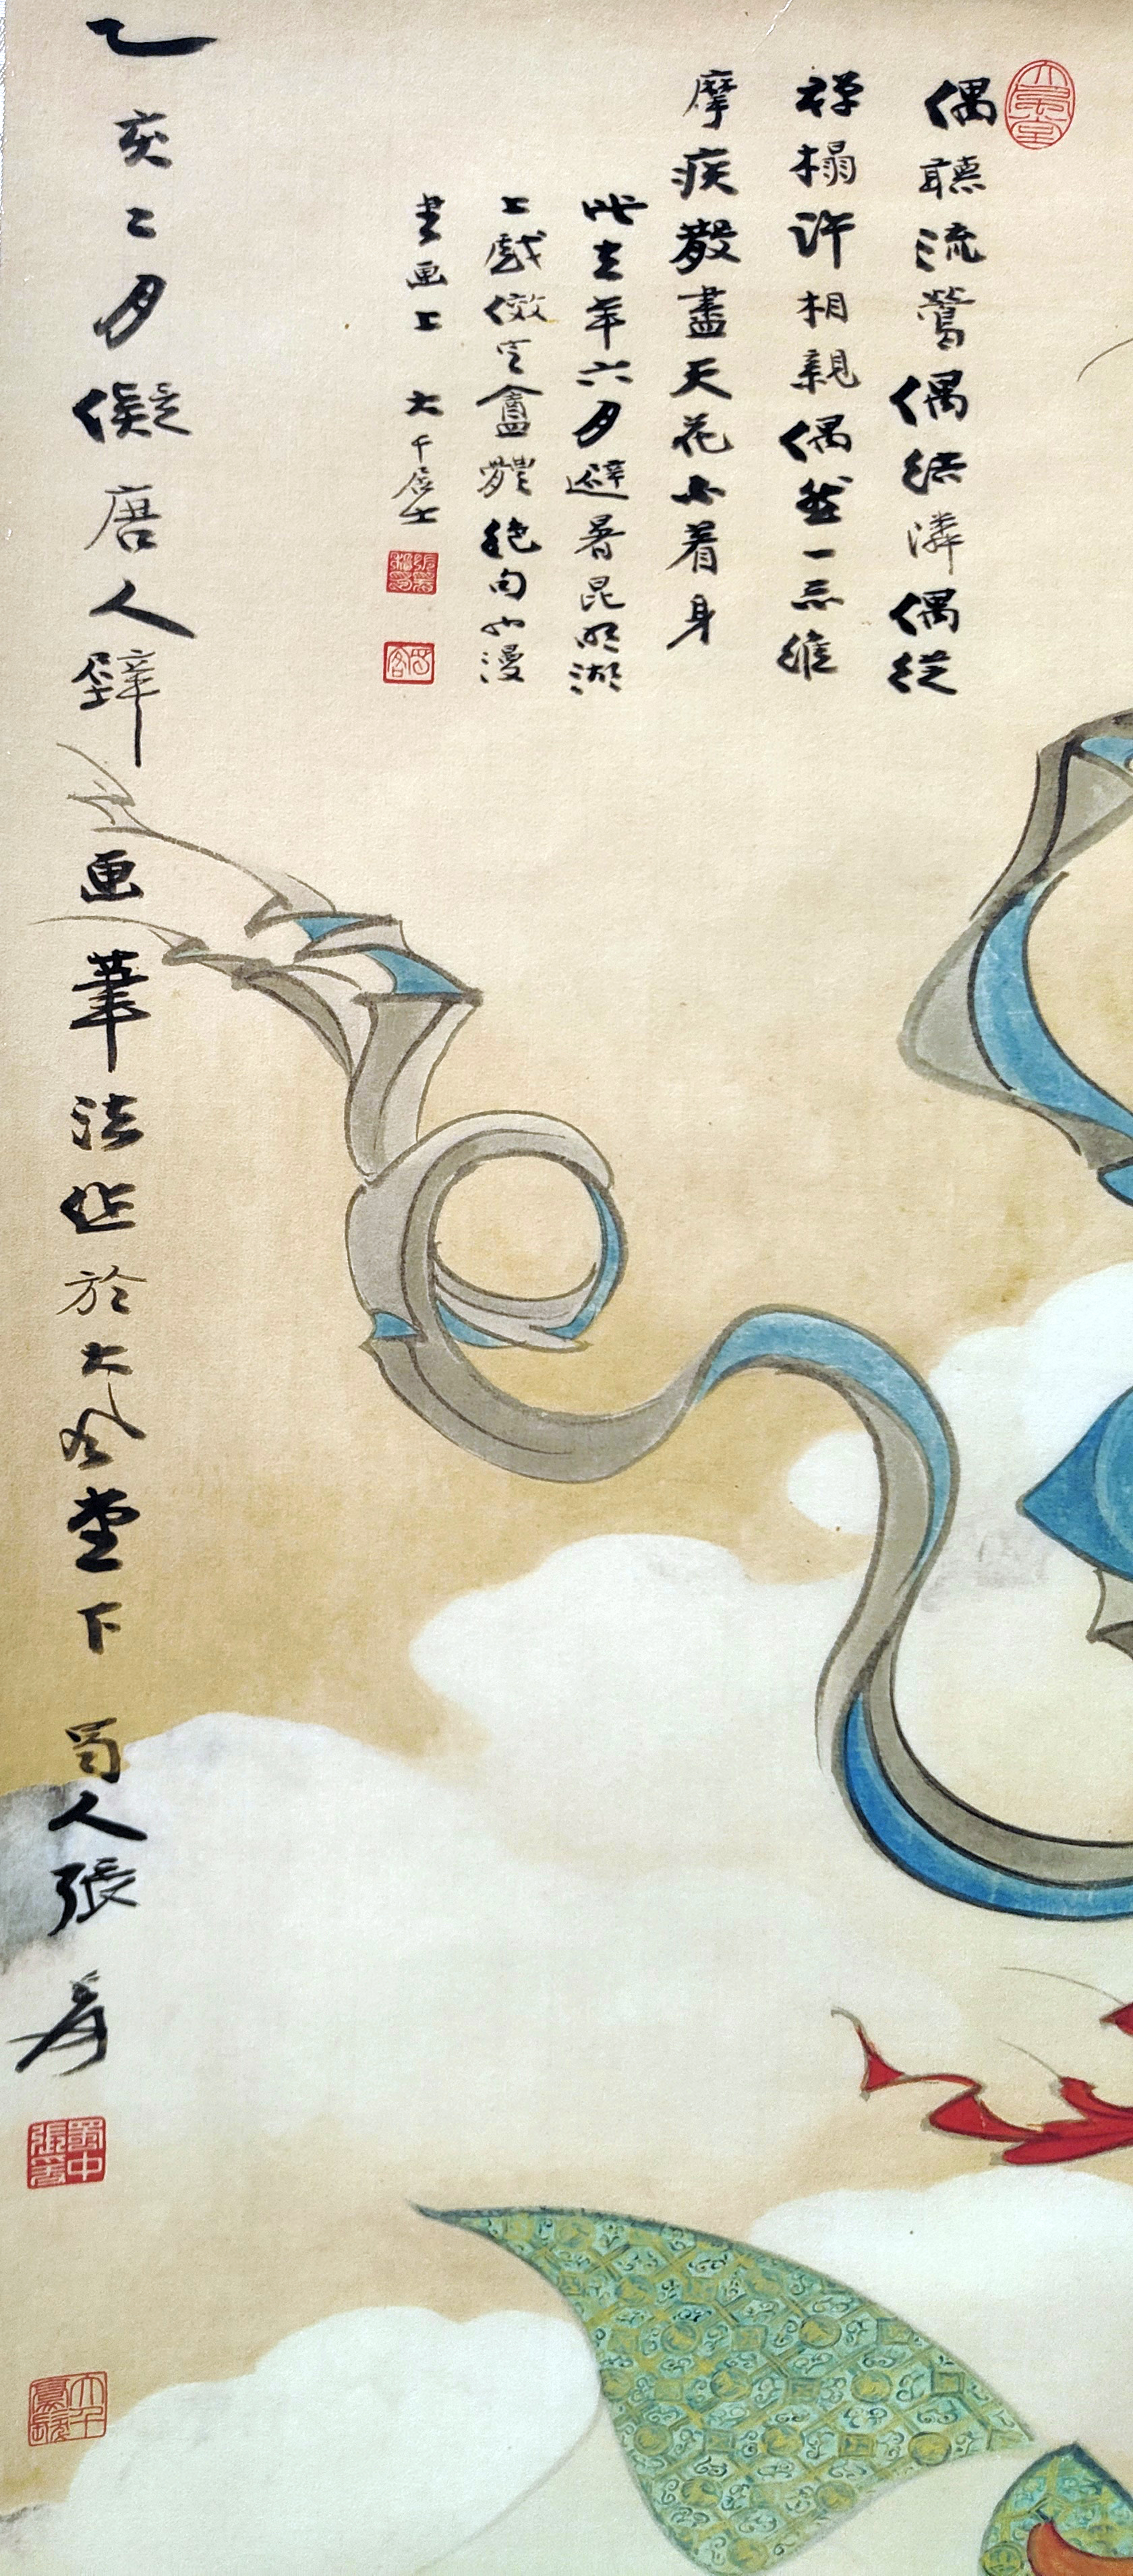 偶聽流鶯偶結憐偶從
禪榻許相親偶然一示維
摩疾散盡天花不着身
此去年六月避暑昆明湖
上戲倣香奩體絕句漫
書畫上 大千居士
乙亥二月儗唐人壁画筆法作於大風堂下 蜀人張爰
大風堂